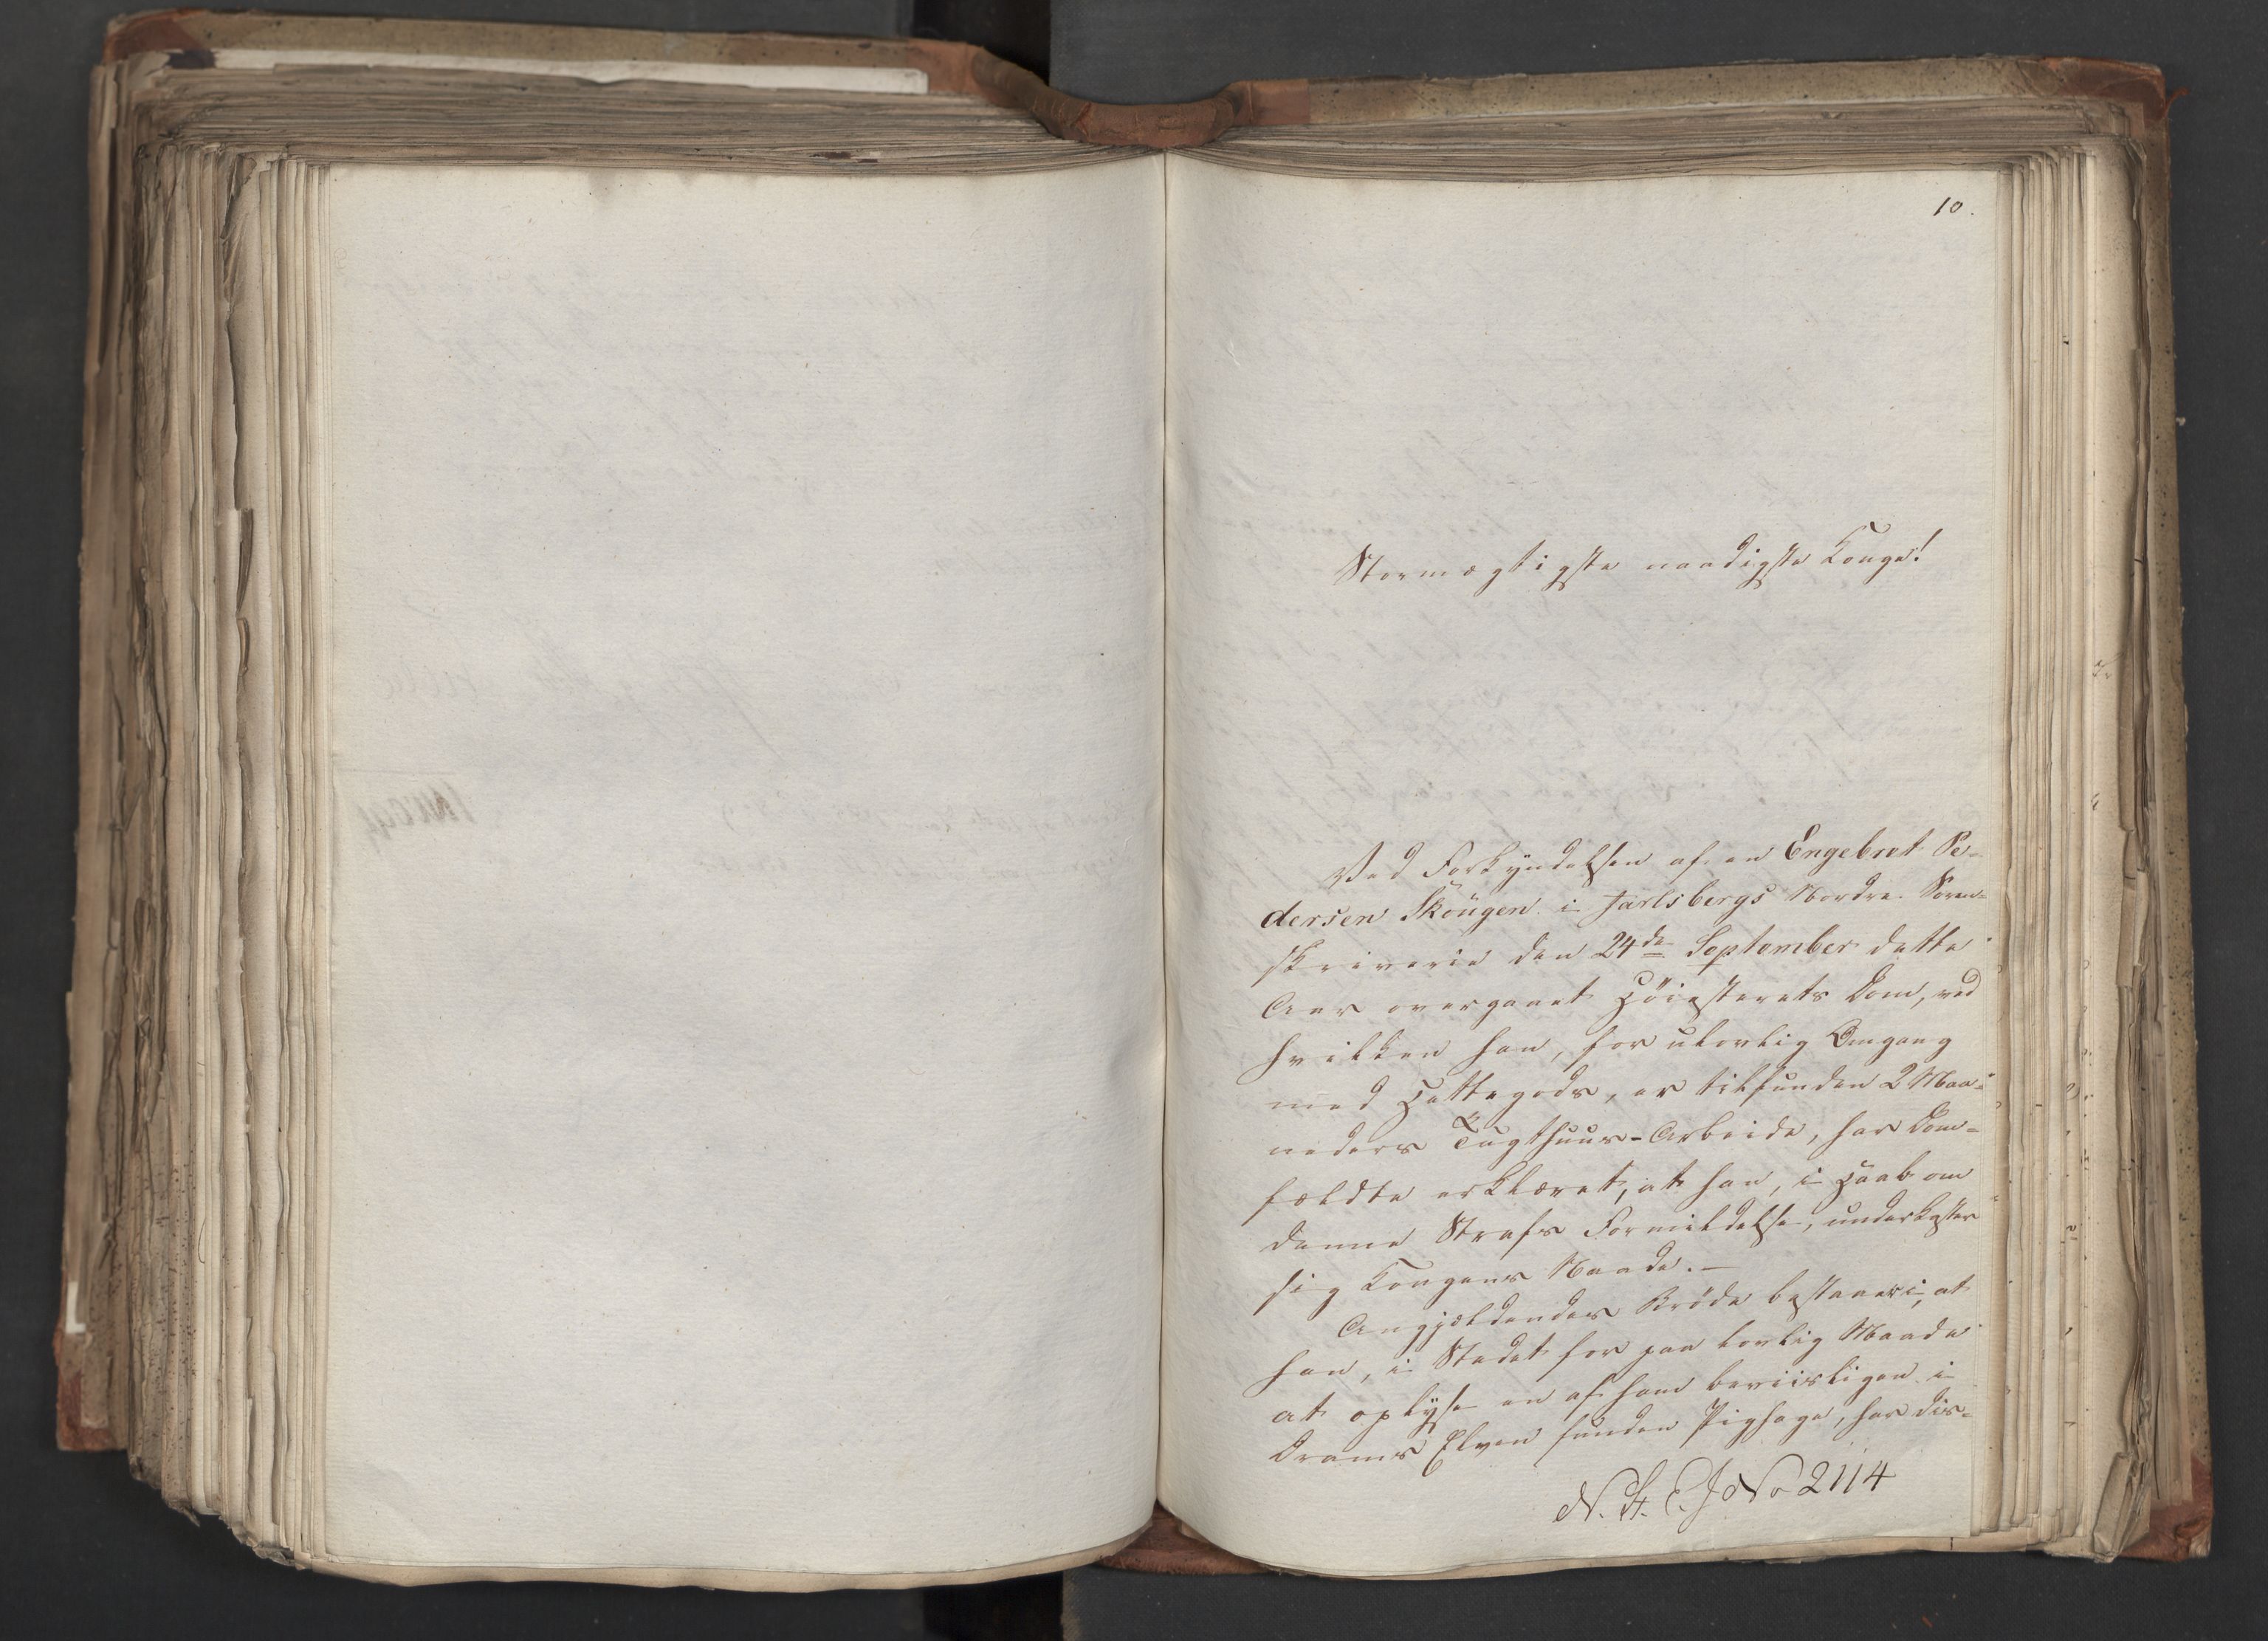 10.
Stormægtigste naadigste Konge!
Ved Forkyndelsen af en Engebret Pe-
dersen Skougen i Jarlsbergs Nordre Soren-
skriverie den 24de September dette
Aar overgaaet Höiesterets Dom, ved
hvilken han, for ulovlig Omgang
med Hittegods, er tilfunden 2 Maa-
neders Tugthuus-Arbeide, har Dom-
fældte erklæret, at han, i Haab om
denne Strafs Formildelse, underkaster
sig Kongens Naade. —
Angjeldendes Bröde bestaaer i, at
han, i Stedet for paa lovlig Maade
at oplyse en af ham beviisligen i
Drams Elven funden Pighage, har dis-
N. St. E. J No 2114